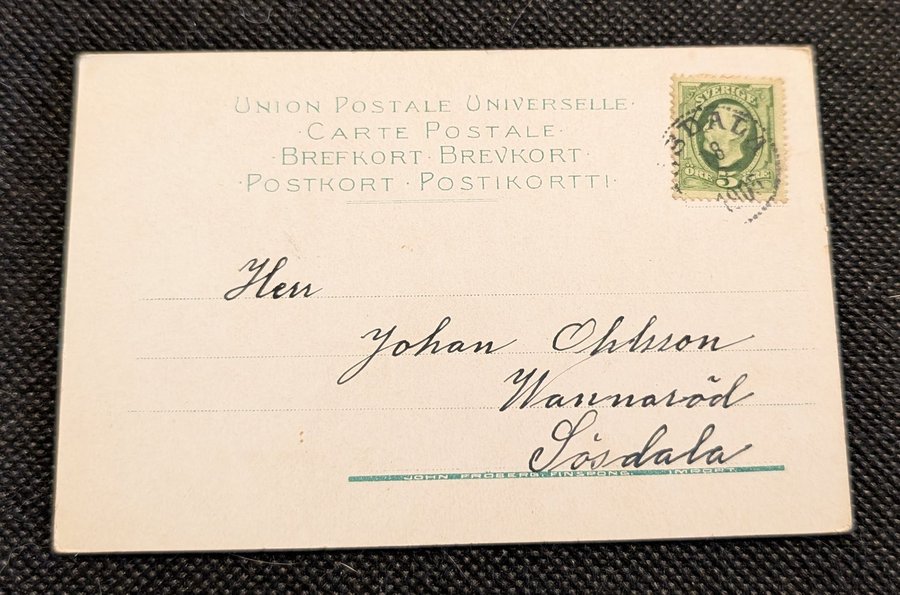 UNION POSTALE UNIVERSELLE·
·CARTE POSTALE·
·BREFKORT·BREVKORT·
·POSTKORT·POSTIKORTTI·
SVERIGE
8
ÖRE 5 ÖRE
Herr
Johan Ohlsson
Wannaröd
Sösdala
JOHN FRÖBERG, FINSPONG. IMPORT.